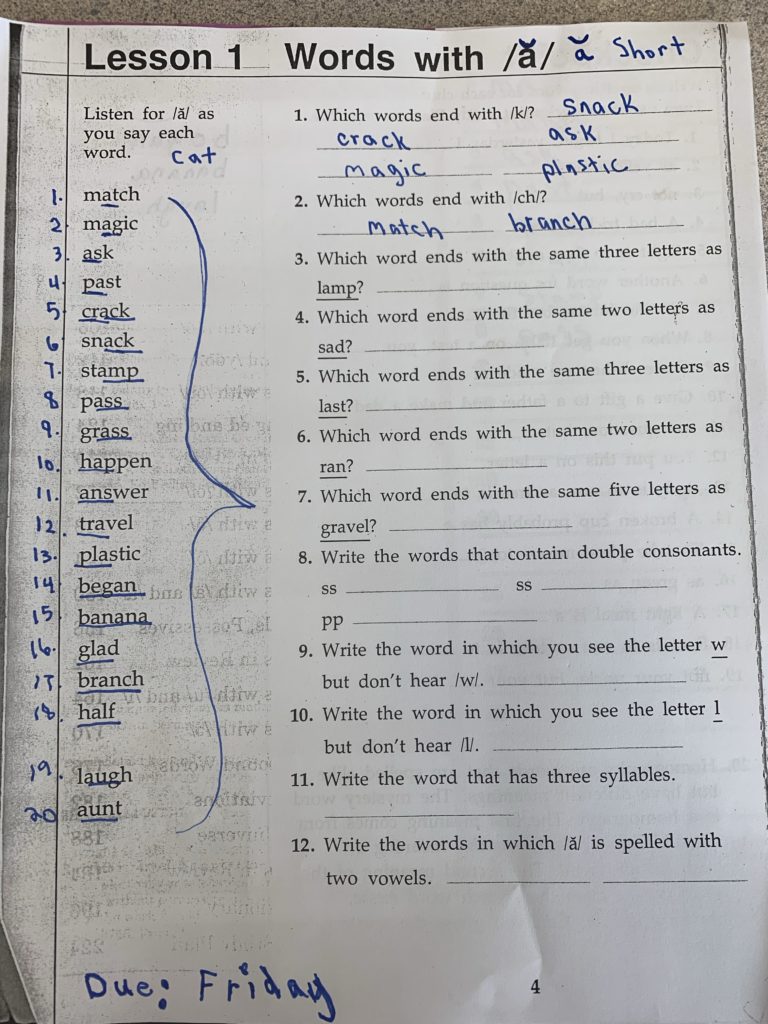 Lesson 1 Words with /ă/ ă Short
Listen for /ă/ as
you say each
word. cat
1. match
2. magic
3. ask
4. past
5. crack
6. snack
7. stamp
8 pass
9. grass
10. happen
11. answer
12. travel
13. plastic
14 began
15 banana
16. glad
17. branch
18. half
19. laugh
20 aunt
1. Which words end with /k/? snack
crack ask
magic plastic
2. Which words end with /ch/?
match branch
3. Which word ends with the same three letters as
lamp?
4. Which word ends with the same two letters as
sad?
5. Which word ends with the same three letters as
last?
6. Which word ends with the same two letters as
ran?
7. Which word ends with the same five letters as
gravel?
8. Write the words that contain double consonants.
ss ss
pp
9. Write the word in which you see the letter w
but don't hear /w/.
10. Write the word in which you see the letter l
but don't hear /l/.
11. Write the word that has three syllables.
12. Write the words in which /ă/ is spelled with
two vowels.
Due: Friday
4